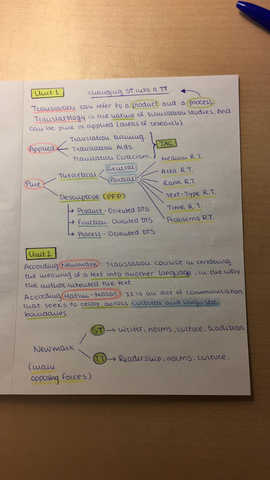 Unit 1 changing ST into a TT
Translation can refer to a product and a process.
Translatology is the nature of translation studies. And
can be pure or applied (areas of research)
Translation Training
Applied Translation Aids. TAC
Translation Criticism
Medium R.T.
General
Theoretical Area R.T.
Partial
Pure Rank R.T.
Descriptive (PFP) Text-Type R.T.
Product-Oriented DTS Time R.T.
Function-Oriented DTS Problems R.T.
Process-Oriented DTS
Unit 2
According Newmark: Translation consist in rendering
the meaning of a text into another language, in the way
the author intented the text.
According Hatim-Mason: It is an act of communication
that seeks to relay across cultural and linguistic
boundaries.
ST → Writer, norms, culture, tradition
Newmark
TT → Readership, norms, culture,
(main
opposing forces)